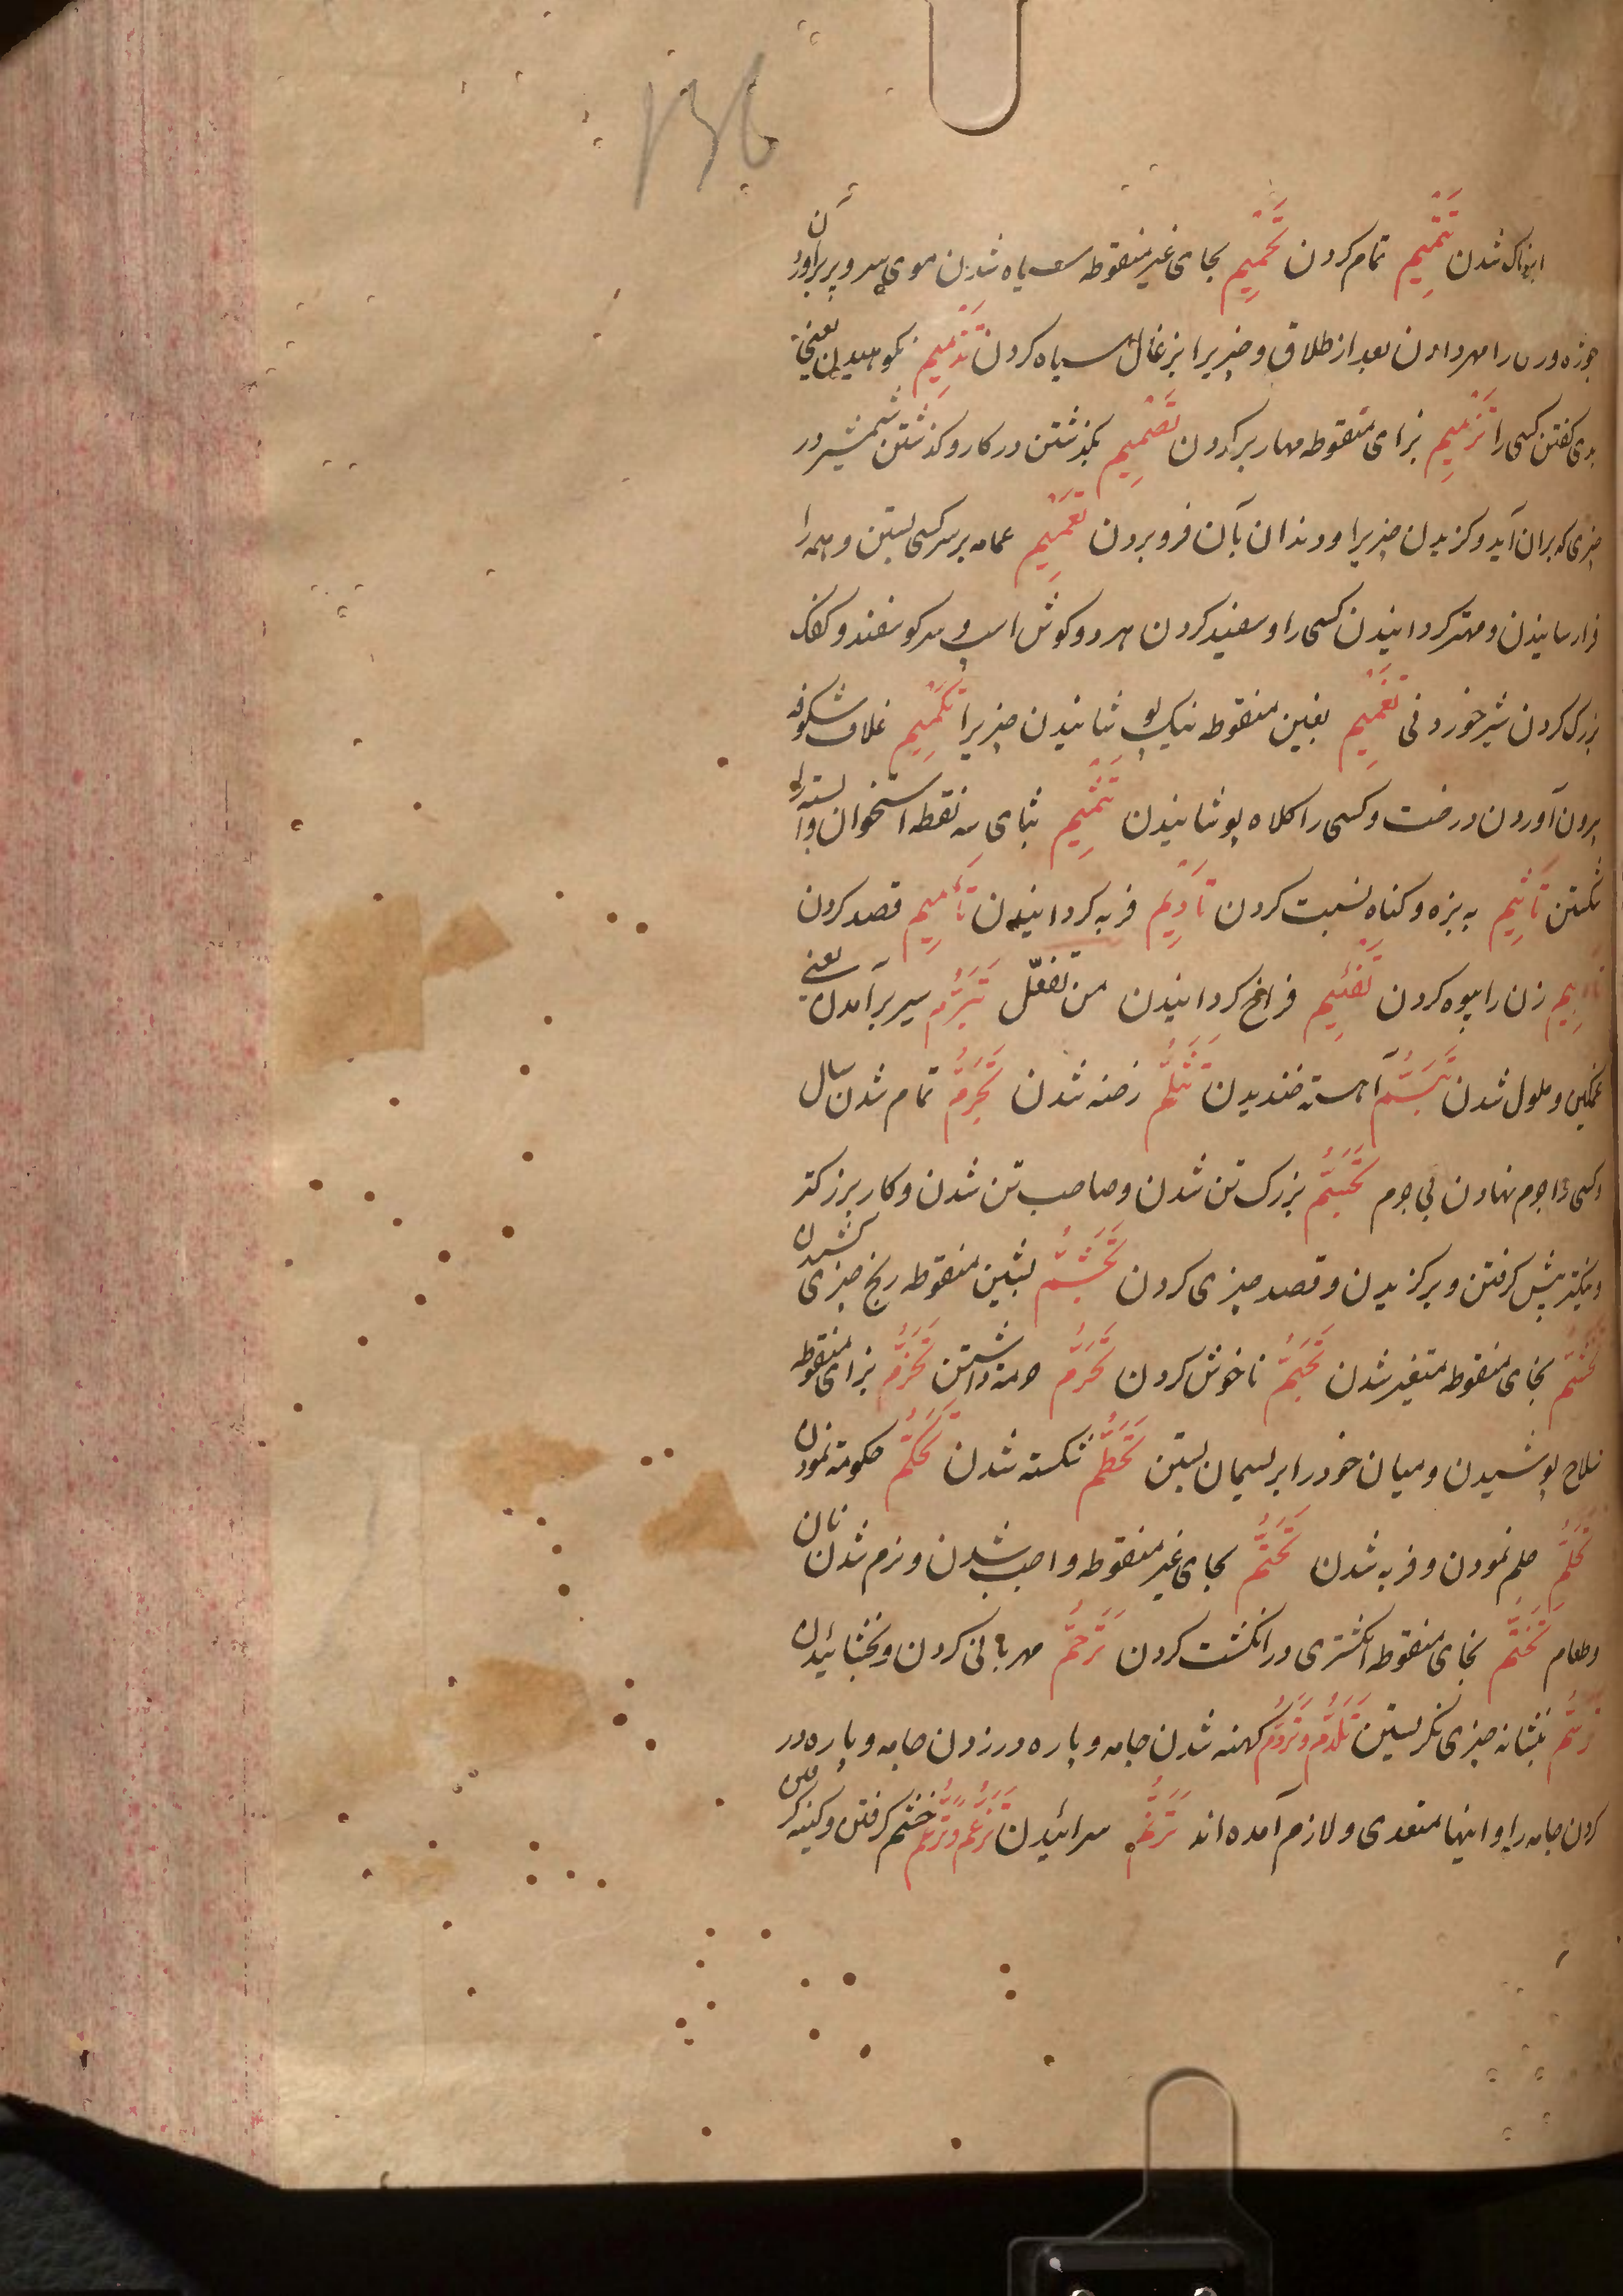 ۱۳۶
ابنوناک شدن تَتْمِیم تمام کردن تَحْمِیم بحای غیر منقوطه سیاه شدن موی سر و پر برآوردن
جوزه و زن را مهر دادن بعد از طلاق و چیزیرا بزغال سیاه کردن تَذْمِیم نکوهیدن یعنی
بدی کفتن کسی را تَزْمِیم بزای منقوطه مهار بر کردن تَصْمِیم بگذشتن در کار و کذشتن شمشیر در
چیزی که بر ان آید و کزیدن چیزیرا و دندان بآن فرو بردن تَعْمِیم عمامه بر سر کسی بستن و همه را
فرا رسانیدن و مهتر کردانیدن کسی را و سفید کردن هر دو کوش اسپ و سر کوسفند و کفک
بزرک کردن شیر خوردنی تَغْمِیم بغین منقوطه نیک پوشانیدن چیزیرا تَکْمِیم غلاف شکوفه
برون آوردن درخت و کسی را کلاه پوشانیدن تَثْمِیم بثای سه نقطه استخوان وا بسته را
شکستن تَاثِیم به بزه و کناه نسبت کردن تَادِیم فربه کردانیدن تَأمِیم قصد کردن
تَایِیم زن را بیوه کردن تَفْئِیم فراخ کردانیدن من تفعّل تَبَرُّم سیر برآمدن یعنی
غمکین و ملول شدن تَبَسُّم آهسته خندیدن تَثَلُّم رخنه شدن تَجَرُّم تمام شدن سال
و کسی را جرم نهادن بی جرم تَجَسُّم بزرک تن شدن و صاحب تن شدن و کار بزرکتر
و نیکتر پیش کرفتن و برکزیدن و قصد چیزی کردن تَجَشُّم بشین منقوطه رنج چیزی کشیدن
بخای منقوطه متغیر شدن تَجَهُّم ناخوش کردن تَحَرُّم حرمة داشتن تَحَزُّم بزای منقوطه
سلاح پوشیدن و میان خود را بریسمان بستن تَحَطُّم شکسته شدن تَحَکُّم حکومة نمودن
تَحَلُّم حلم نمودن و فربه شدن تَحَتُّم بحای غیر منقوطه واجب شدن و نرم شدن نان
و طعام تَخَتُّم بخای منقوطه انکشتری در انکشت کردن تَرَحُّم مهربانی کردن و بخشائیدن
تَرَسُّم بنشانه چیزی نکریستن تَلَدُّم و تَرَدُّم کهنه شدن جامه و پاره در زدن جامه و پاره در
کردن جامه را و اینها متعدی و لازم آمده اند تَرَنُّم سرائیدن تَزَغُّم و تَرَغُّم خشم کرفتن و کینه کرفتن